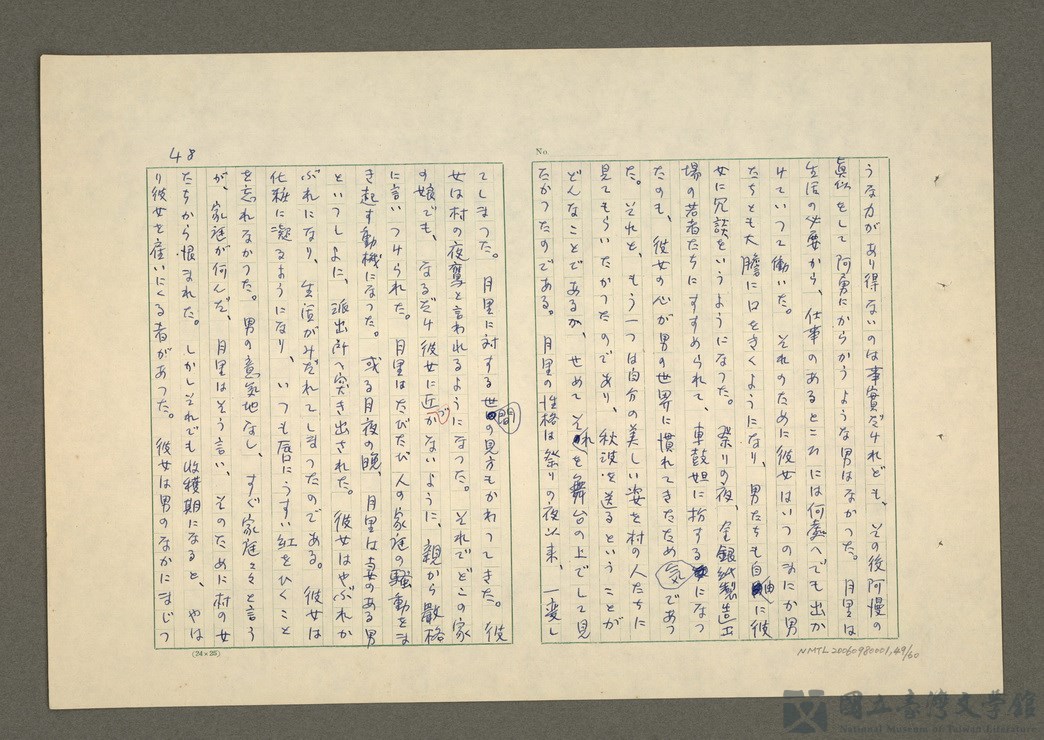 No.
うな力があり得ないのは事実だけれども、その後阿慢の
真似をして阿勇にからかうような男はなかつた。月里は
生活の必要から、仕事のあるところには何處へでも出か
けていつて働いた。それのために彼女はいつのまにか男
たちとも大膽に口をきくようになり、男たちも自由に彼
女に冗談をいうようになつた。祭りの夜、金銀紙製造工
場の若者たちにすすめられて、車鼓妲に扮する気になつ
たのも、彼女の心が男の世界に慣れてきたためであつ
た。それと、もう一つは自分の美しい姿を村の人たちに
見てもらいたかつたのであり、秋波を送るということが
どんなことであるか、せめてそれを舞台の上でして見
たかつたのである。月里の性格は祭りの夜以来、一変し
48
てしまつた。月里に対する世間の見方もかわつてきた。彼
女は村の夜鶯と言われるようになつた。それでどこの家
の娘でも、なるだけ彼女に近づかないように、親から厳格
に言いつけられた。月里はたびたび人の家庭の騒動をま
き起す動機になつた。或る月夜の晩、月里は妻のある男
といつしよに、派出所へ突き出された。彼女はやぶれか
ぶれになり、生活がみだれてしまつたのである。彼女は
化粧に凝るようになり、いつも唇にうすい紅をひくこと
を忘れなかつた。男の意気地なし、すぐ家庭々々と言う
が、家庭が何んだ、月里はそう言い、そのために村の女
たちから恨まれた。しかしそれでも收穫期になると、やは
り彼女を雇いにくる者があつた。彼女は男のなかにまじつ
(24×25)
NMTL20060980001,49/60
國立臺灣文学館
National Museum of Taiwan Literature